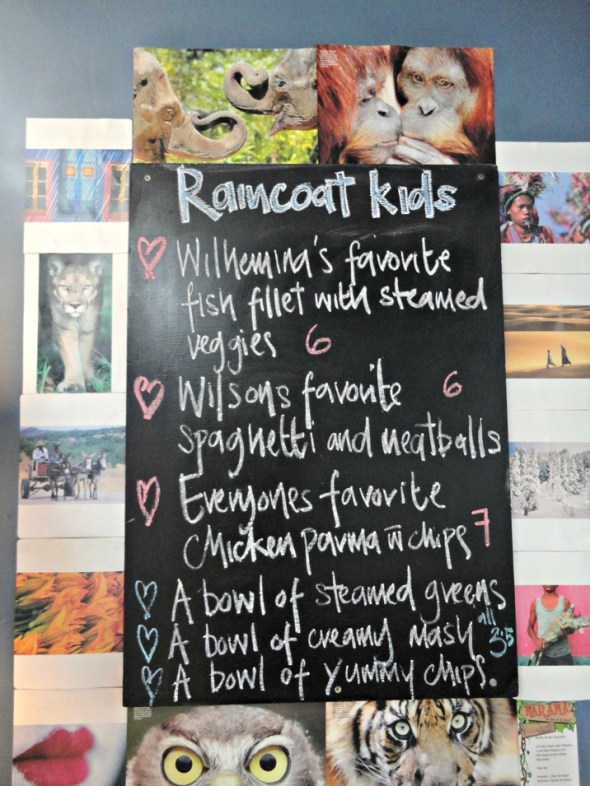 Raincoat kids
Wilhemina's favorite
fish fillet with steamed
veggies 6
Wilsons favorite 6
spaghetti and meatballs
Everyones favorite
Chicken parma w chips 7
A bowl of steamed greens
A bowl of creamy mash all 3.5
A bowl of yummy chips.